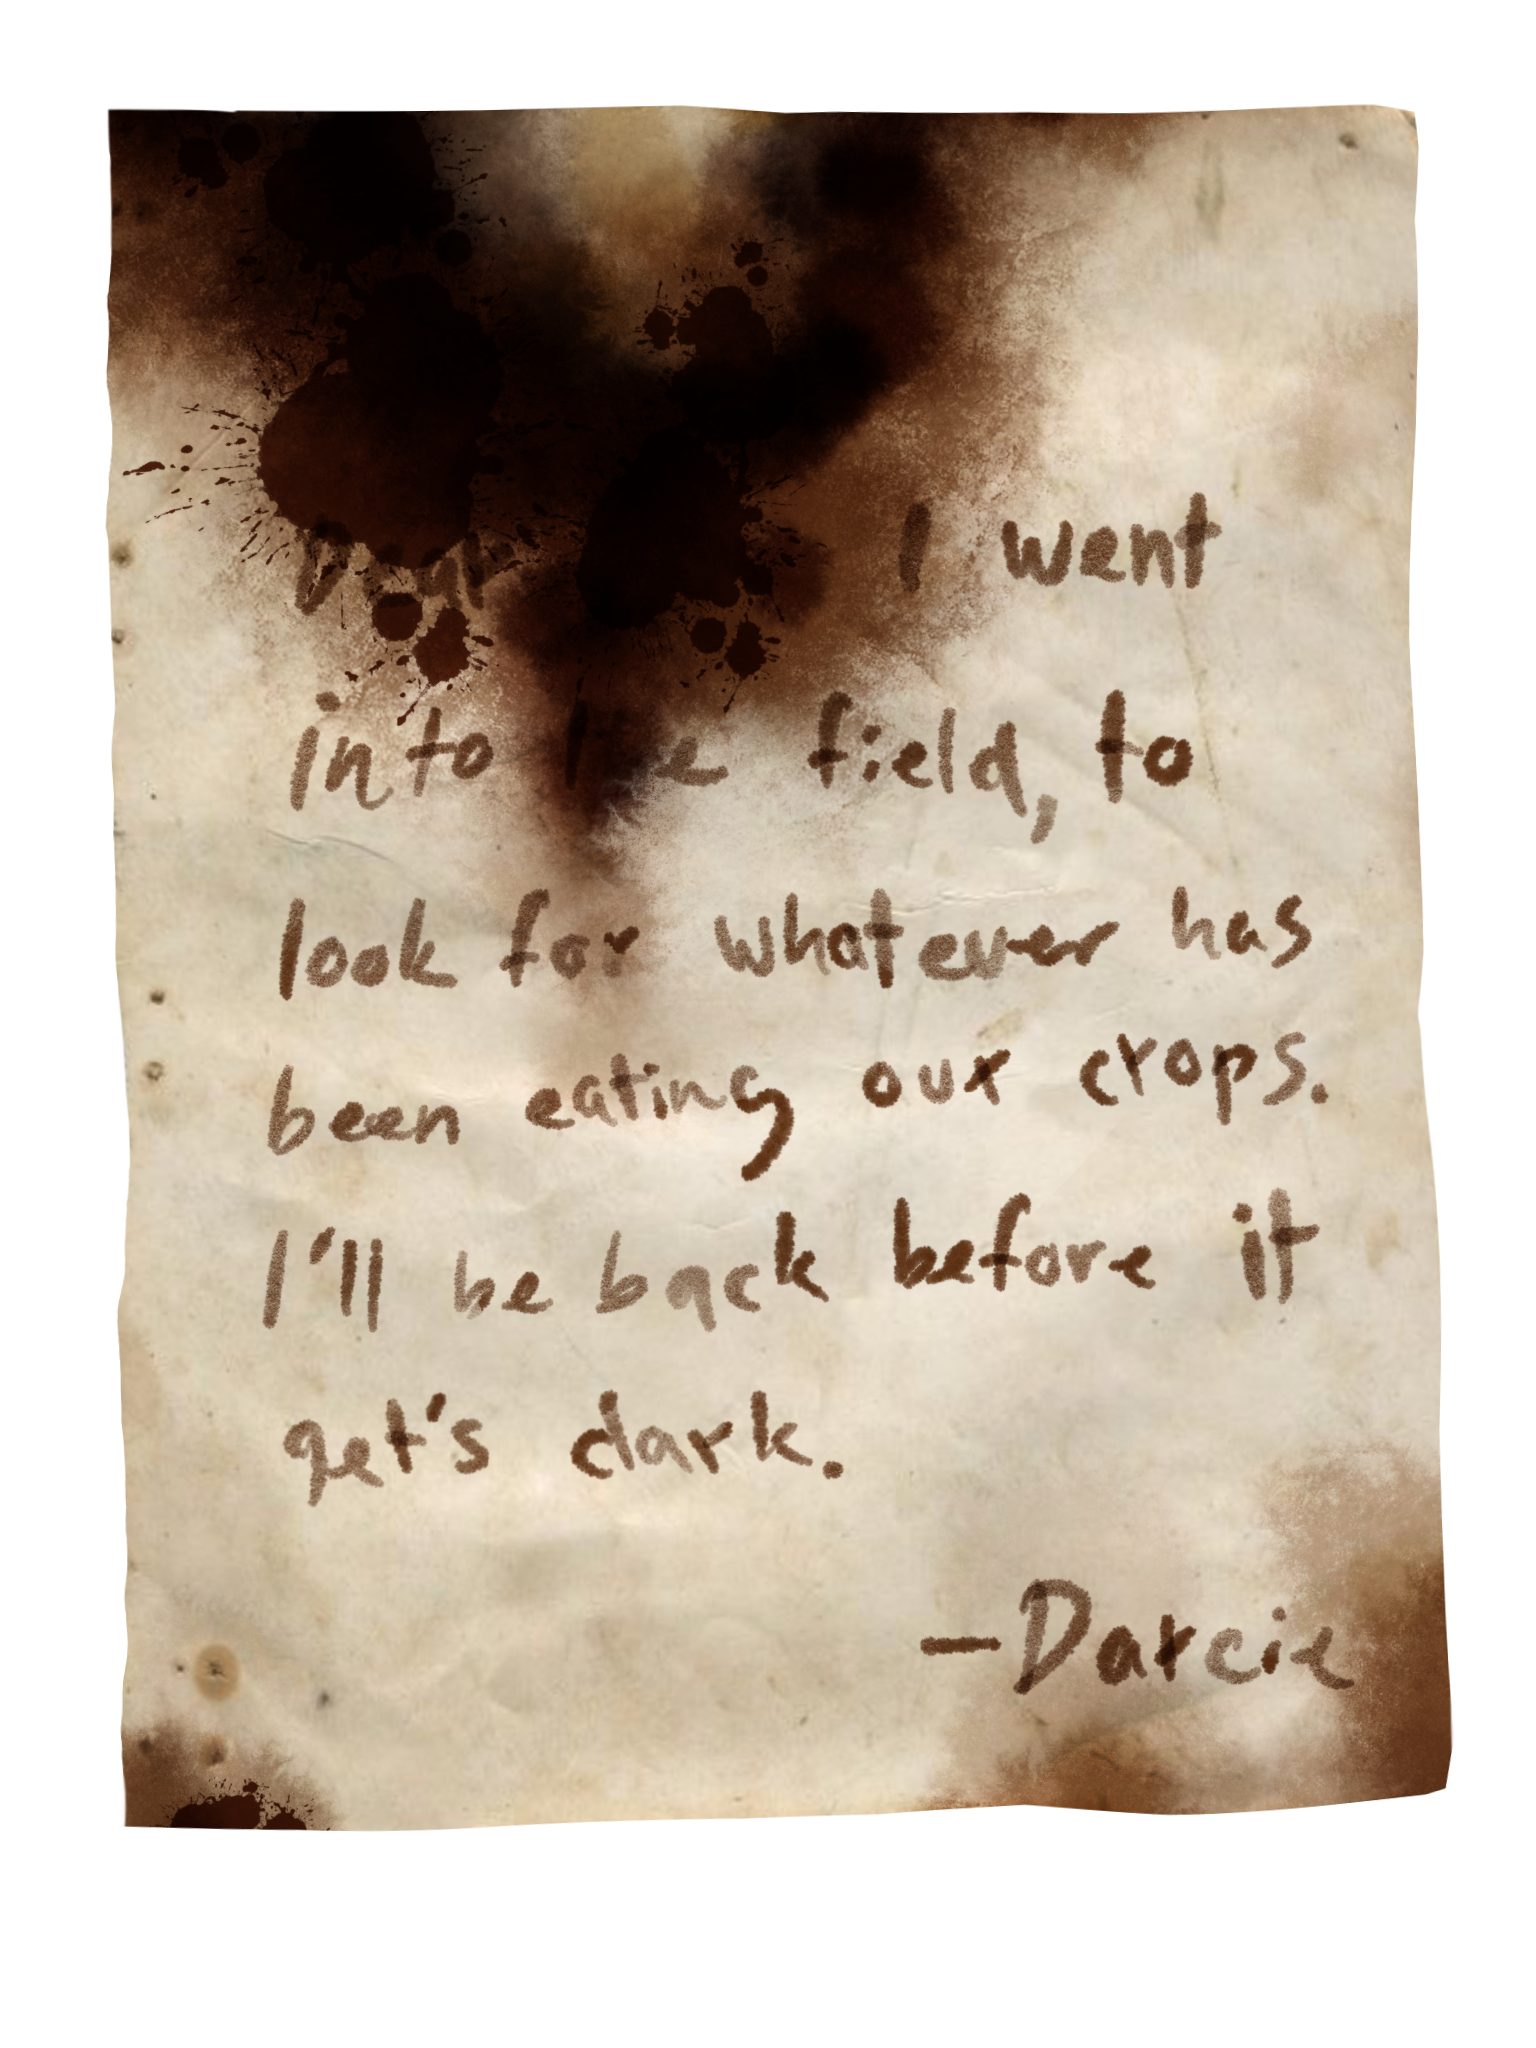 I went
into the field, to
look for whatever has
been eating our crops.
I'll be back before it
get's dark.
—Darcie